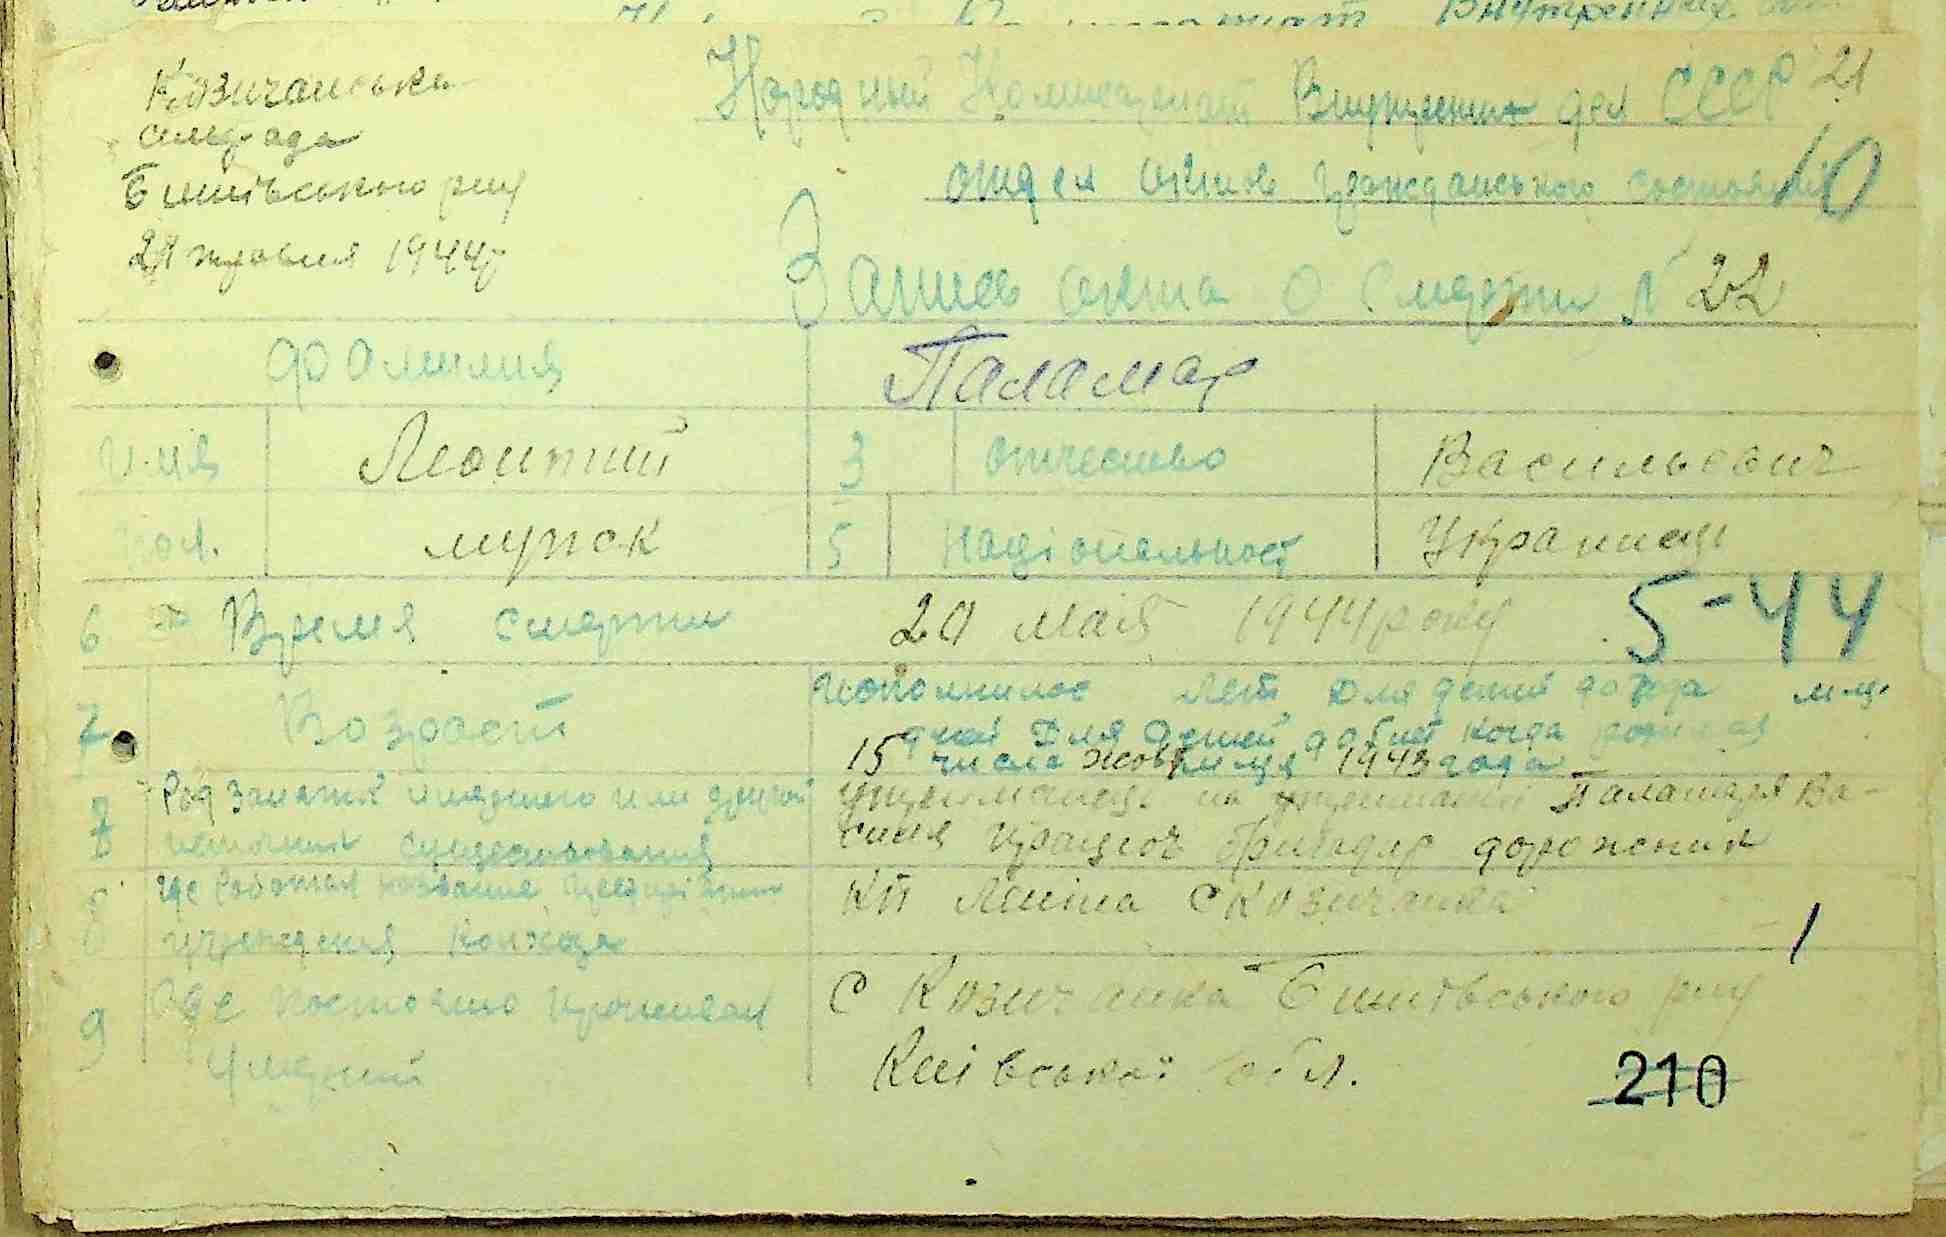 Козичанська
сільрада
Бишівського р-ну
21 травня 1944 р
Народный Комиссариат Внутренних дел СССР 21
отдел актов гражданського состояния 10
Запись акта о смерти N 22
Фамилия Паламар
имя Леонтий 3 отчество Васильевич
пол. мужск 5 Національност Украинець
6 Время смерти 20 мая 1944 року 5-44
7 Возраст Исполнилос лет для детей до года м-ц.
дней Для детей до 5 лет когда родился
15 числа жовт м-ця 1943 года
Род занятий умершего или другой
источник существования
утриманець на утриманні Паламаря Ва-
силя працює бригадир дорожник
8 Где работал название предприятия
учреждения, колхоза
КП Леніна С Козичанка
1
9 Где постояно проживал
Умерший
С Козичанка Бишівського р-ну
Київської обл.
210